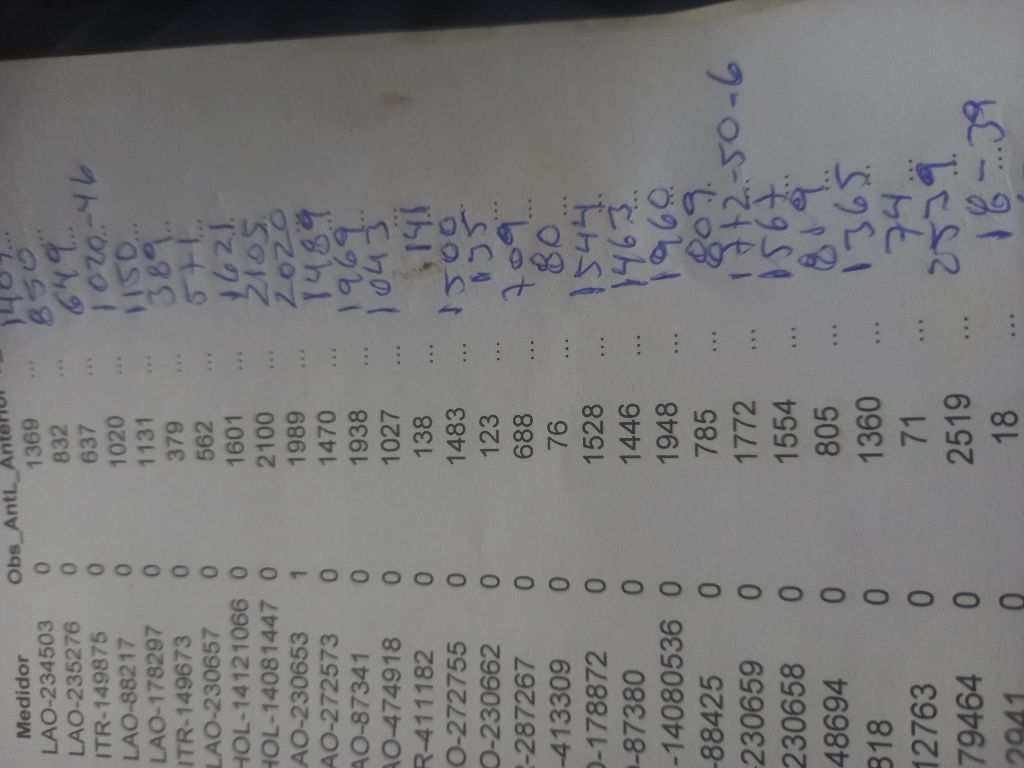 Medidor Obs_Ant L_Anterior
LAO-234503 0 1369 ... 1407...
LAO-235276 0 832 ... 850...
ITR-149875 0 637 ... 649...
LAO-88217 0 1020 ... 1020-46
LAO-178297 0 1131 ... 1150...
ITR-149673 0 379 ... 389...
LAO-230657 0 562 ... 571...
HOL-14121066 0 1601 ... 1621...
HOL-14081447 0 2100 ... 2105...
AO-230653 1 1989 ... 2020
AO-272573 0 1470 ... 1489
AO-87341 0 1938 ... 1969...
AO-474918 0 1027 ... 1043...
R-411182 0 138 ... 141
O-272755 0 1483 ... 1500...
O-230662 0 123 ... 135...
-287267 0 688 ... 709...
-413309 0 76 ... 80...
-178872 0 1528 ... 1544...
-87380 0 1446 ... 1463...
-14080536 0 1948 ... 1960...
-88425 0 785 ... 809...
230659 0 1772 ... 1772-50-6
230658 0 1554 ... 1567...
48694 0 805 ... 819...
818 0 1360 ... 1365...
12763 0 71 ... 74...
79464 0 2519 ... 2539...
2941 0 18 ... 18-39